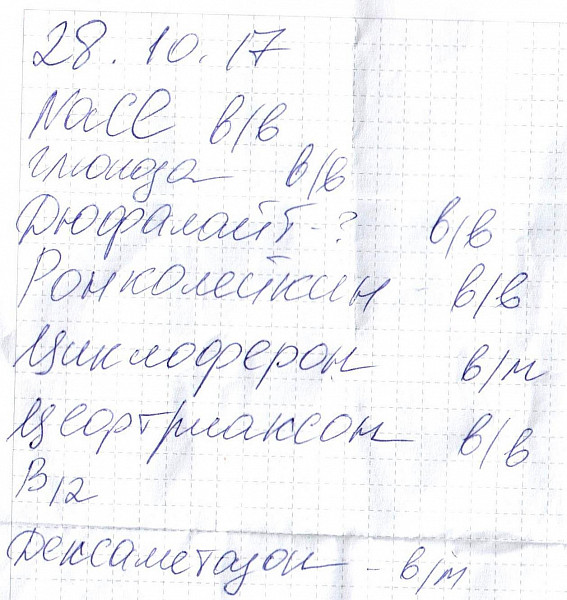 28.10.17
NaCl в/в
глюкоза в/в
Дюфалайт-? в/в
Ронколейкин - в/в
Циклоферон в/м
Цефтриаксон в/в
B12
Дексаметазон - в/м